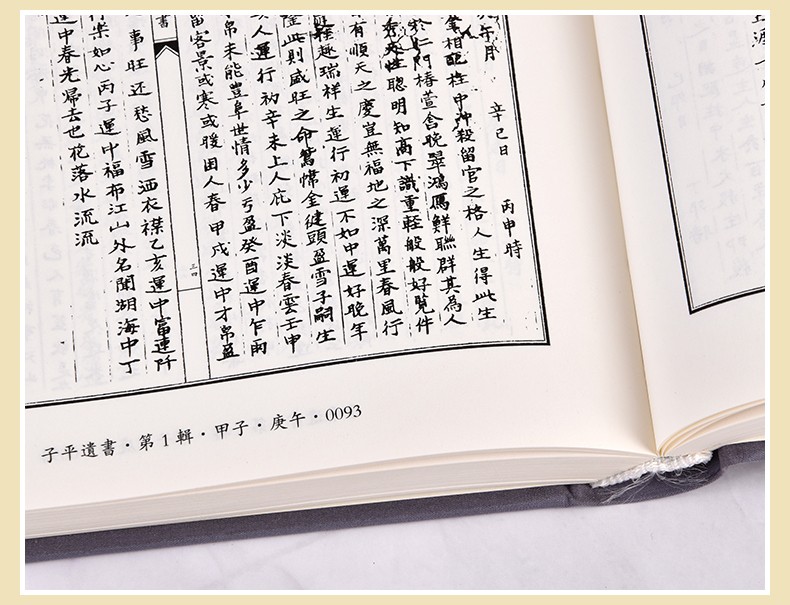 午月 辛巳日 丙申時
相配柱中沖殺留官之格人生得此生
於仁門椿萱舍晚翠鴻鴈鮮聯群其為人
性聰明知高下識重輕般般好覧件
有順天之慶豈無福地之深萬里春風行
趣瑞祥生運行初運不如中運好晚年
此則盛旺之命鴛幃金健頭盈雪子嗣生
人運行初辛未上人庇下淡淡春雲壬申
帛未能豈阜世情多少亏盈癸酉運中乍雨
留客景或寒或暖因人春甲戌運中才帛盈
書
三四
事旺还愁風雪洒衣襟乙亥運中富連阡
樂如心丙子運中福布江山外名聞湖海中丁
運中春光歸去也花落水流流
子平遺書·第1輯·甲子·庚午·0093